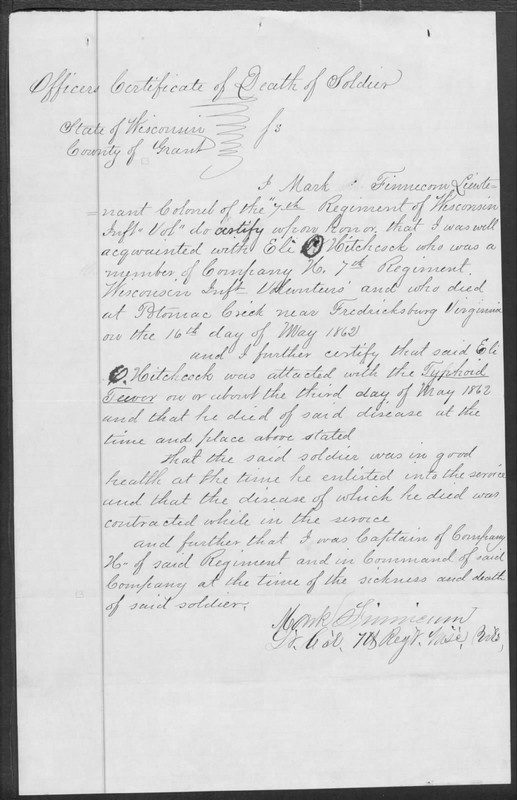 Officers Certificate of Death of Soldier
State of Wisconsin
County of Grant } ss
I Mark Finnecom Lieute-
nant Colonel of the "7th Regiment of Wisconsin
Inft Vol" do certify upon honor, that I was well
acqwainted with Eli O Hitchcock who was a
member of Company H. 7th Regiment
Wisconsin Inft Volunteers and who died
at Potomac Creek near Fredricksburg Virginia
on the 16th day of May 1862
and I further certify that said Eli
O. Hitchcock was attacted with the Typhoid
Feavor on or abowt the third day of May 1862
and that he died of said disease at the
time and place above stated
That the said soldier was in good
health at the time he enlisted into the service
and that the disease of which he died was
contracted while in the service
and further that I was Captain of Company
H- of said Regiment and in Command of said
Company at the time of the sickness and death
of said soldier.
Mark Finnicum
Lt. Col. 7th Reg't. Wisc. Vols,